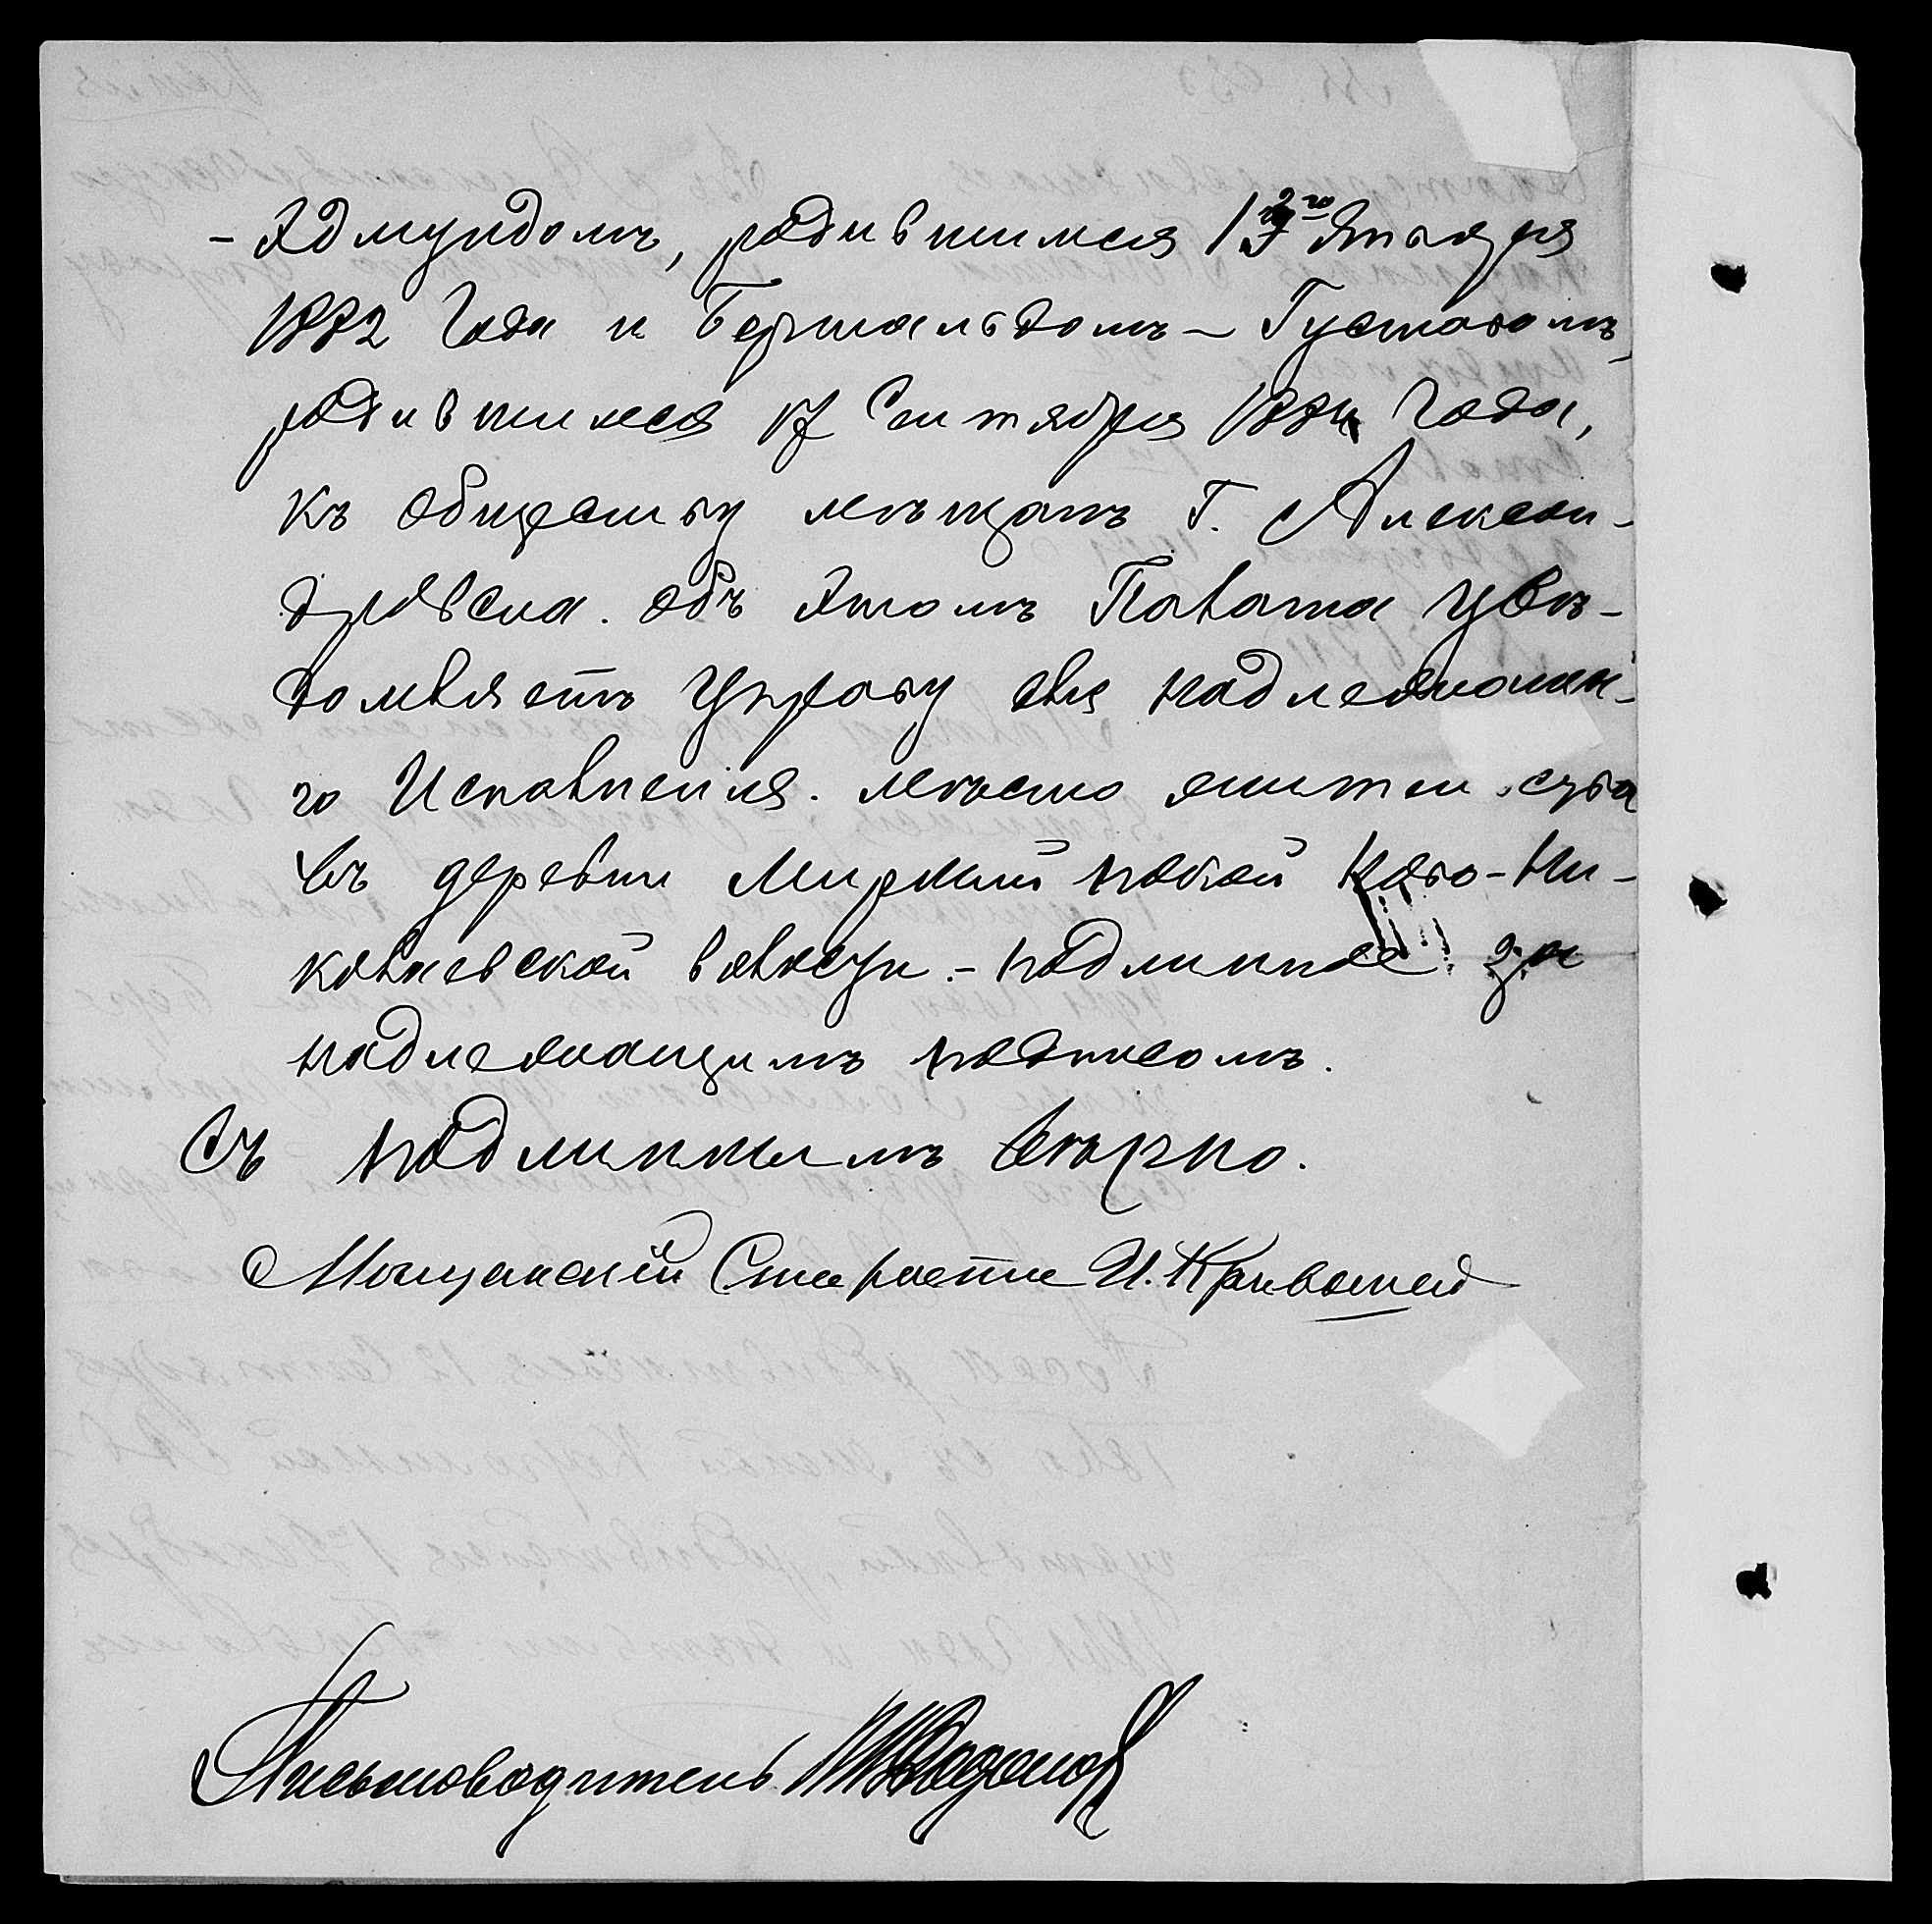 - Эдмундомъ, родившимся 13го Января
1882 Года и Бертгольдомъ - Густавомъ,
родившимся 17 Сентября 1884 Года,
къ обществу мѣщанъ Г. Алексан-
дровска. объ этомъ Палата увѣ-
домляетъ Управу для надлежаща-
го Исполненія. мѣсто жительства
въ деревни Мирской Ново-Ни-
колаевской волости. - подлинное за
надлежащимъ подписомъ.
Съ подлиннымъ вѣрно.
Мѣщанскій Староста И. Кривошей
Письмоводитель